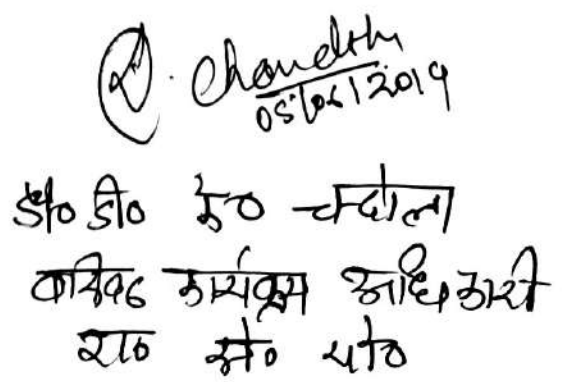 D. Chandola
05/06/2019
डॉ० डी० के० चन्दोला
वरिष्ठ कार्यक्रम अधिकारी
रा० से० यो०